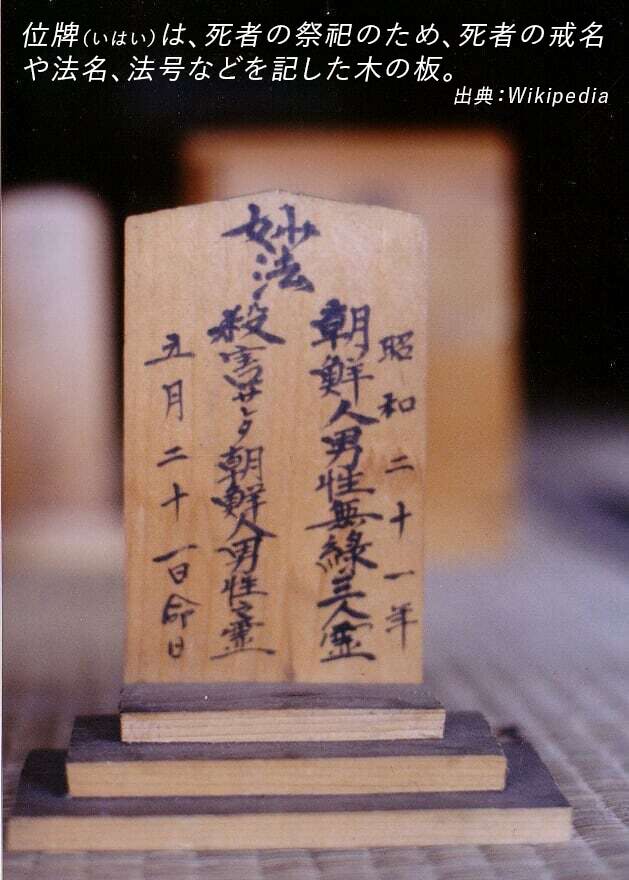 位牌（いはい）は、死者の祭祀のため、死者の戒名
や法名、法号などを記した木の板。
出典：Wikipedia
妙法
昭和二十一年
朝鮮人男性無縁三人霊
殺害サレタ朝鮮人男性之霊
五月二十一日命日